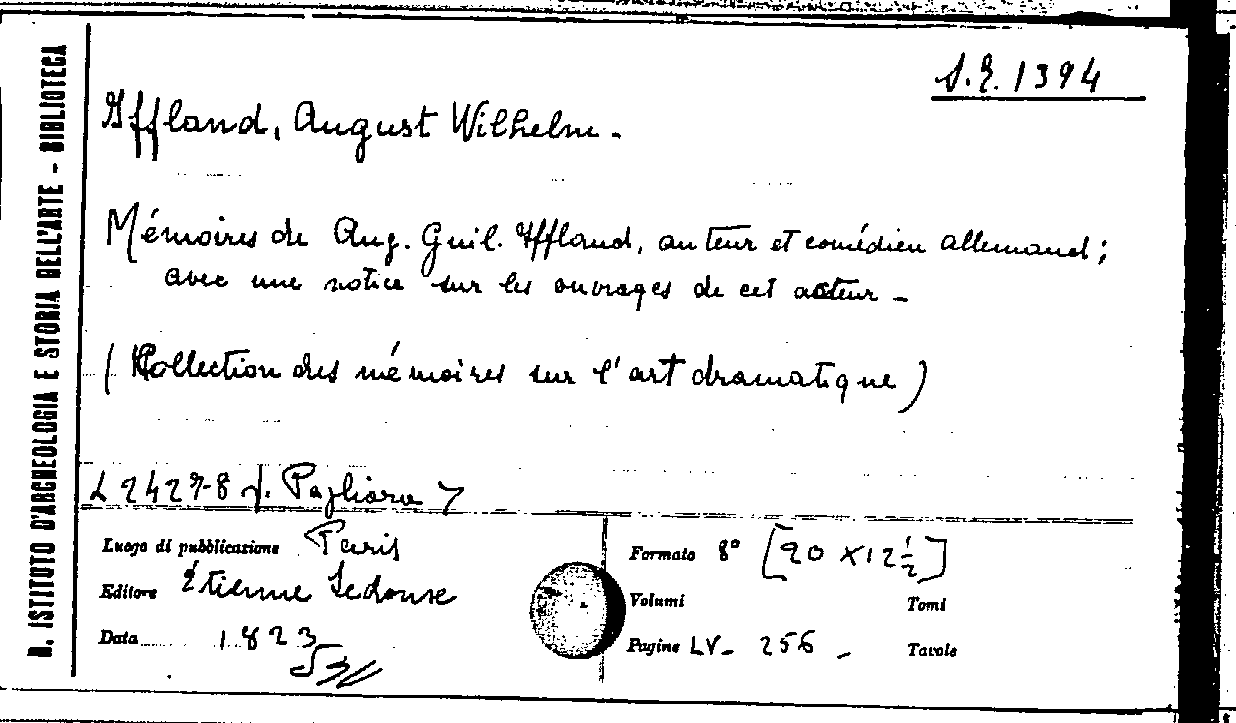 R. ISTITUTO D'ARCHEOLOGIA E STORIA DELL'ARTE - BIBLIOTECA
S.E. 1394
Iffland, August Wilhelm.
Mémoires de Aug. Guil. Iffland, auteur et comédien allemand;
avec une notice sur les ouvrages de cet acteur -
(Collection des mémoires sur l'art dramatique)
Pagliara
Luogo di pubblicazione Paris
Editore Étienne Ledouse
Data 1823
Formato 8° [20 X 12 1/2]
Volumi Tomi
Pagine LV - 256 - Tavole